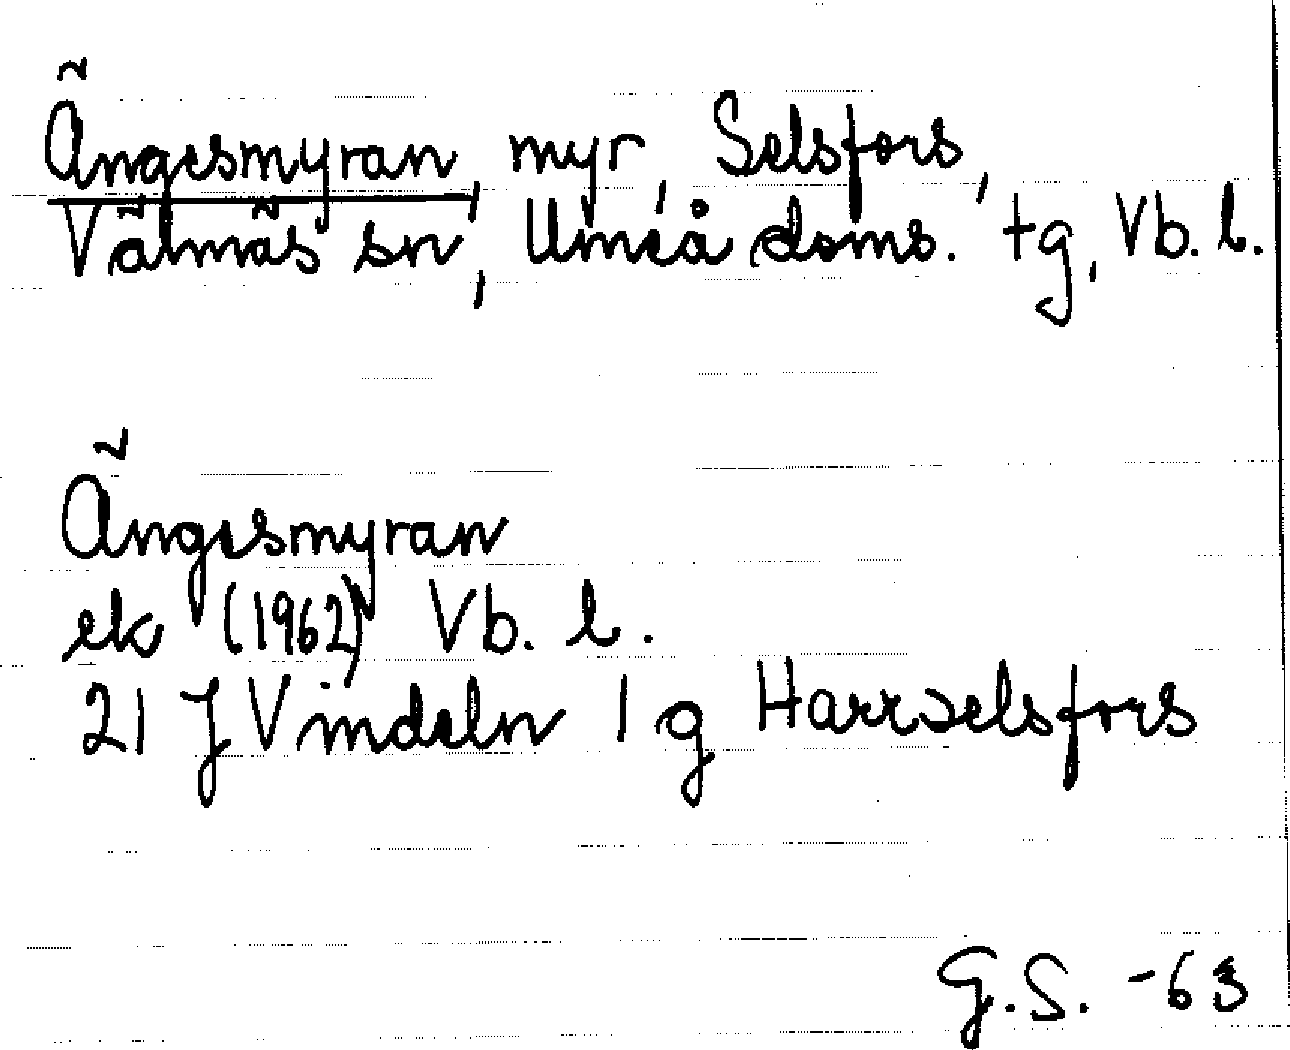 Ängesmyran, myr, Selsfors,
Vännäs sn, Umeå doms. tg, Vb. l.
Ängesmyran
ek (1962) Vb. l.
21 J Vindeln 1 g Harrselsfors
G.S. -63